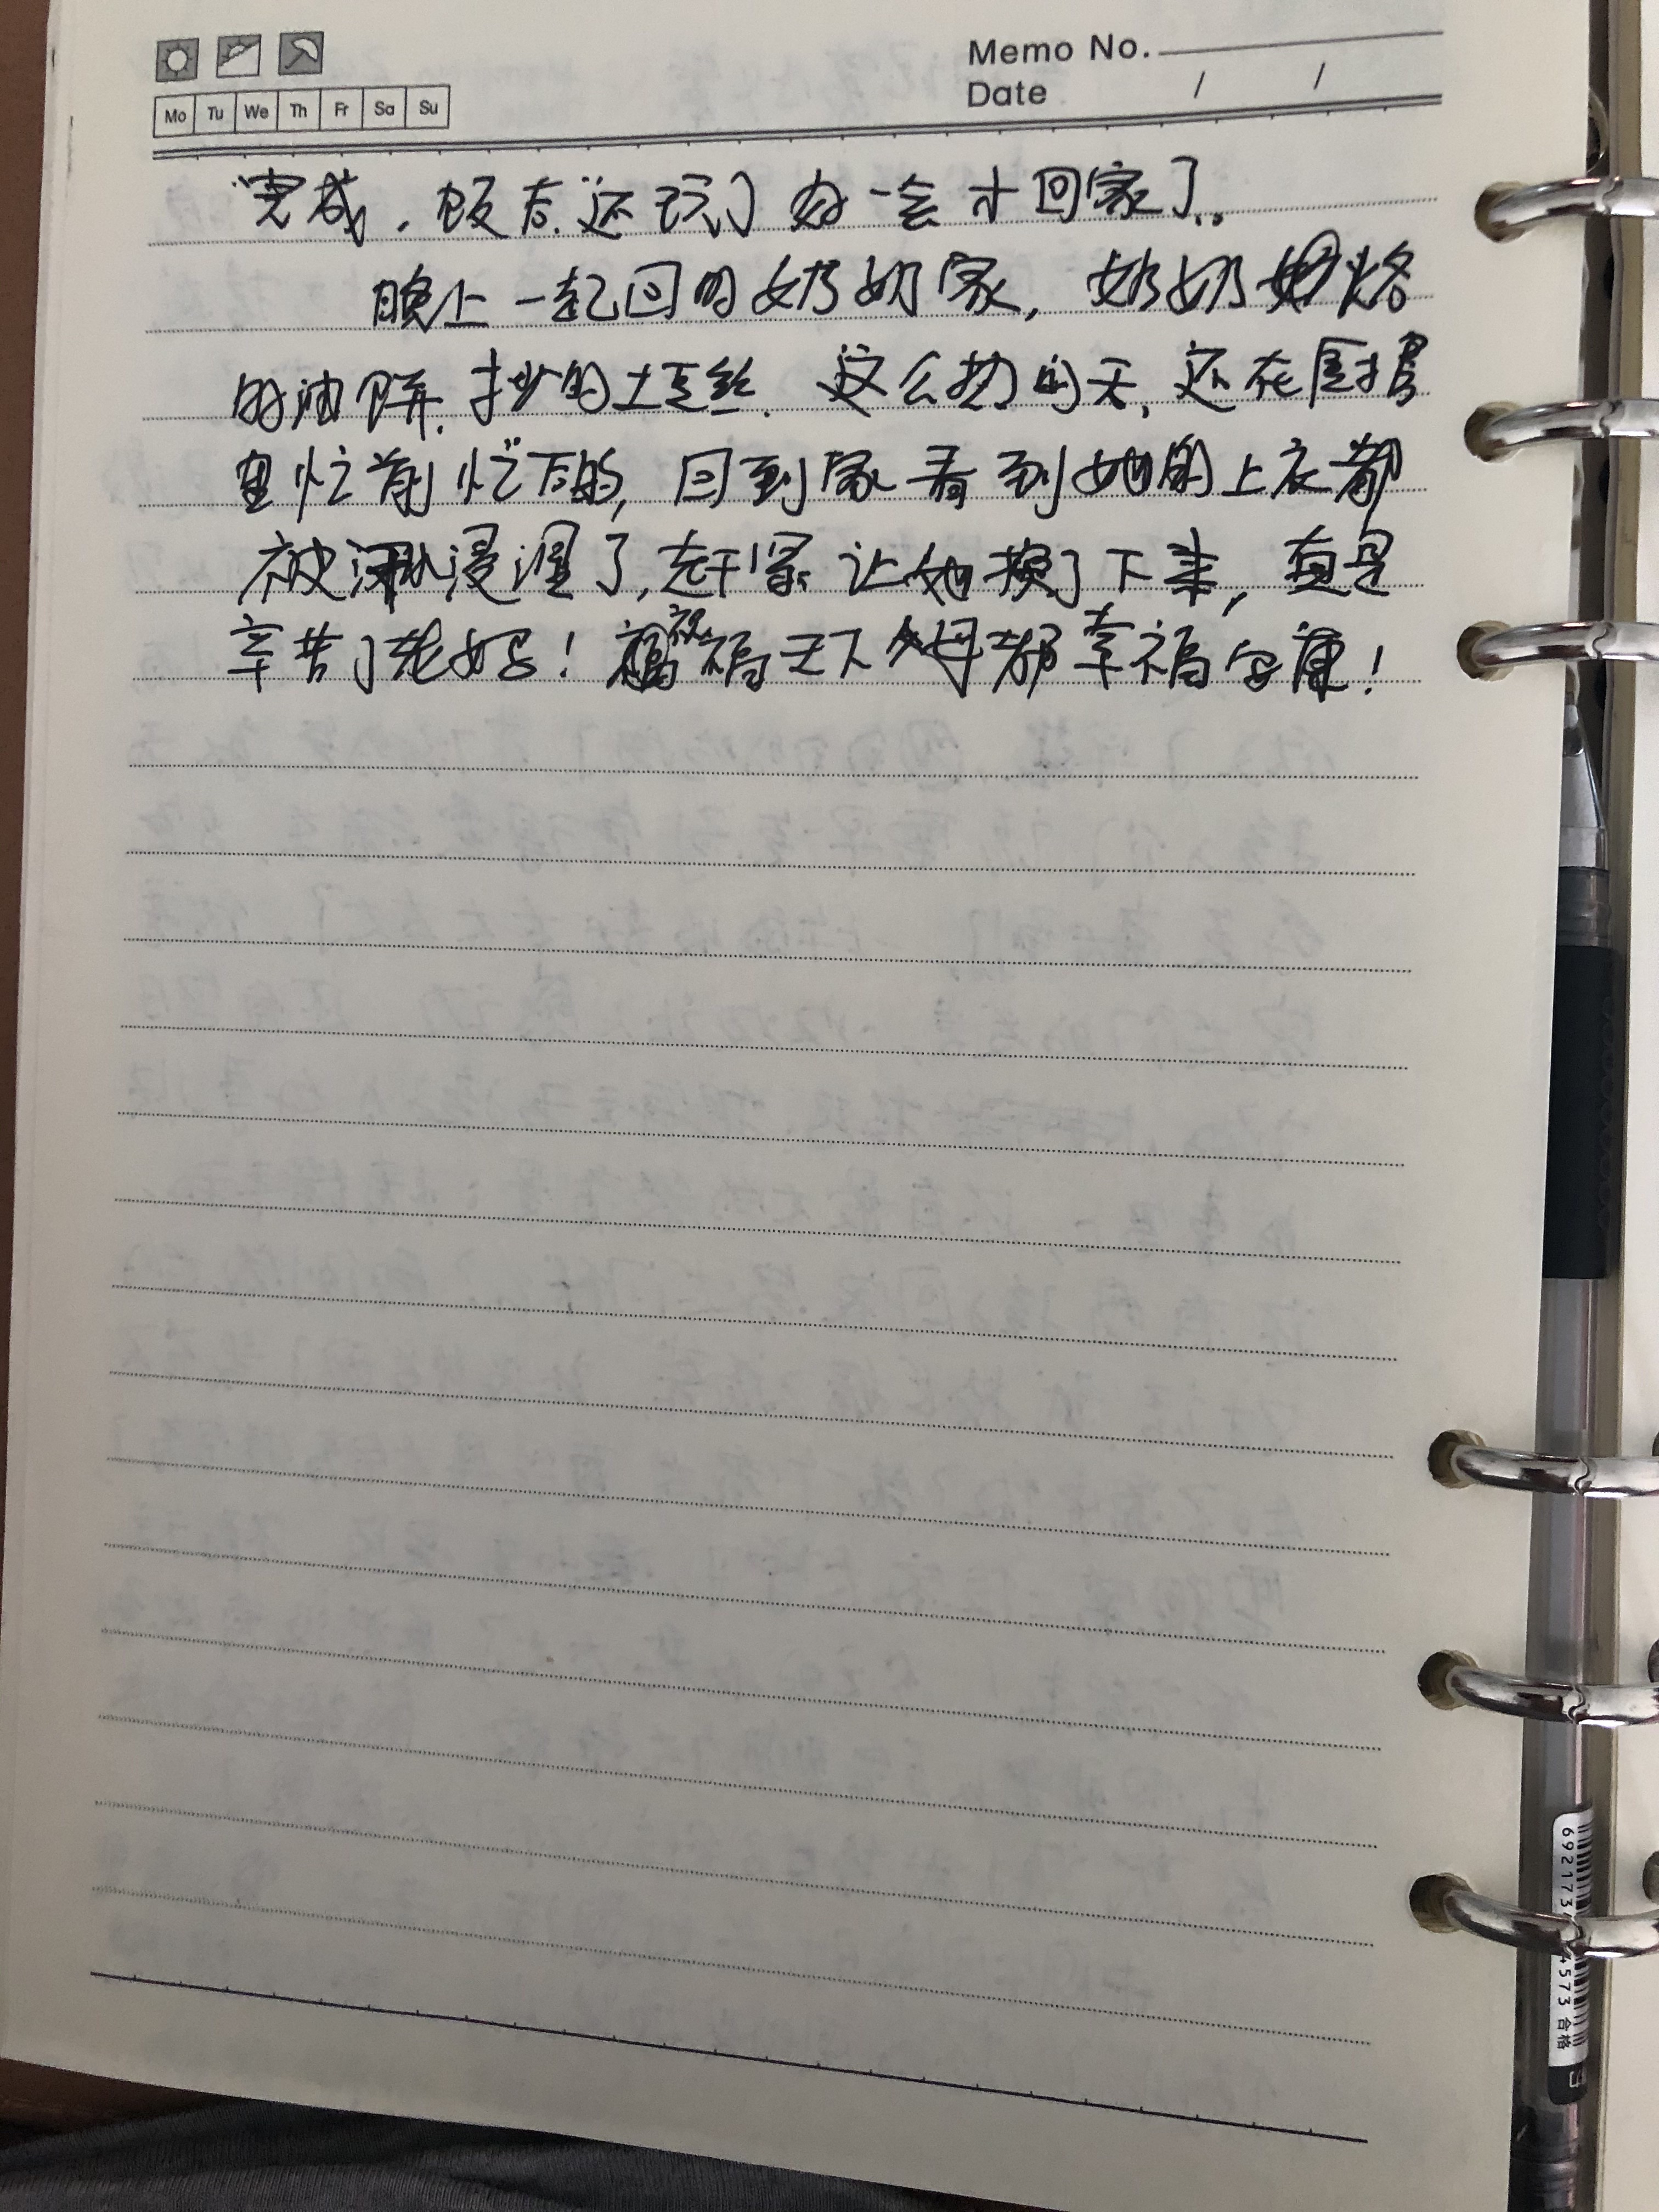 Memo No.
Date / /
Mo Tu We Th Fr Sa Su
完成，饭后还玩了好一会才回家了。
晚上一起回的奶奶家，奶奶烙
的油饼，抄的土豆丝，这么热的天，还在厨房
里忙前忙下的，回到家看到她的上衣都
被汗浸湿了，赶紧让她换了下来，真是
辛苦了老妈！祝福天下父母都幸福安康！
6921734 4573 合格